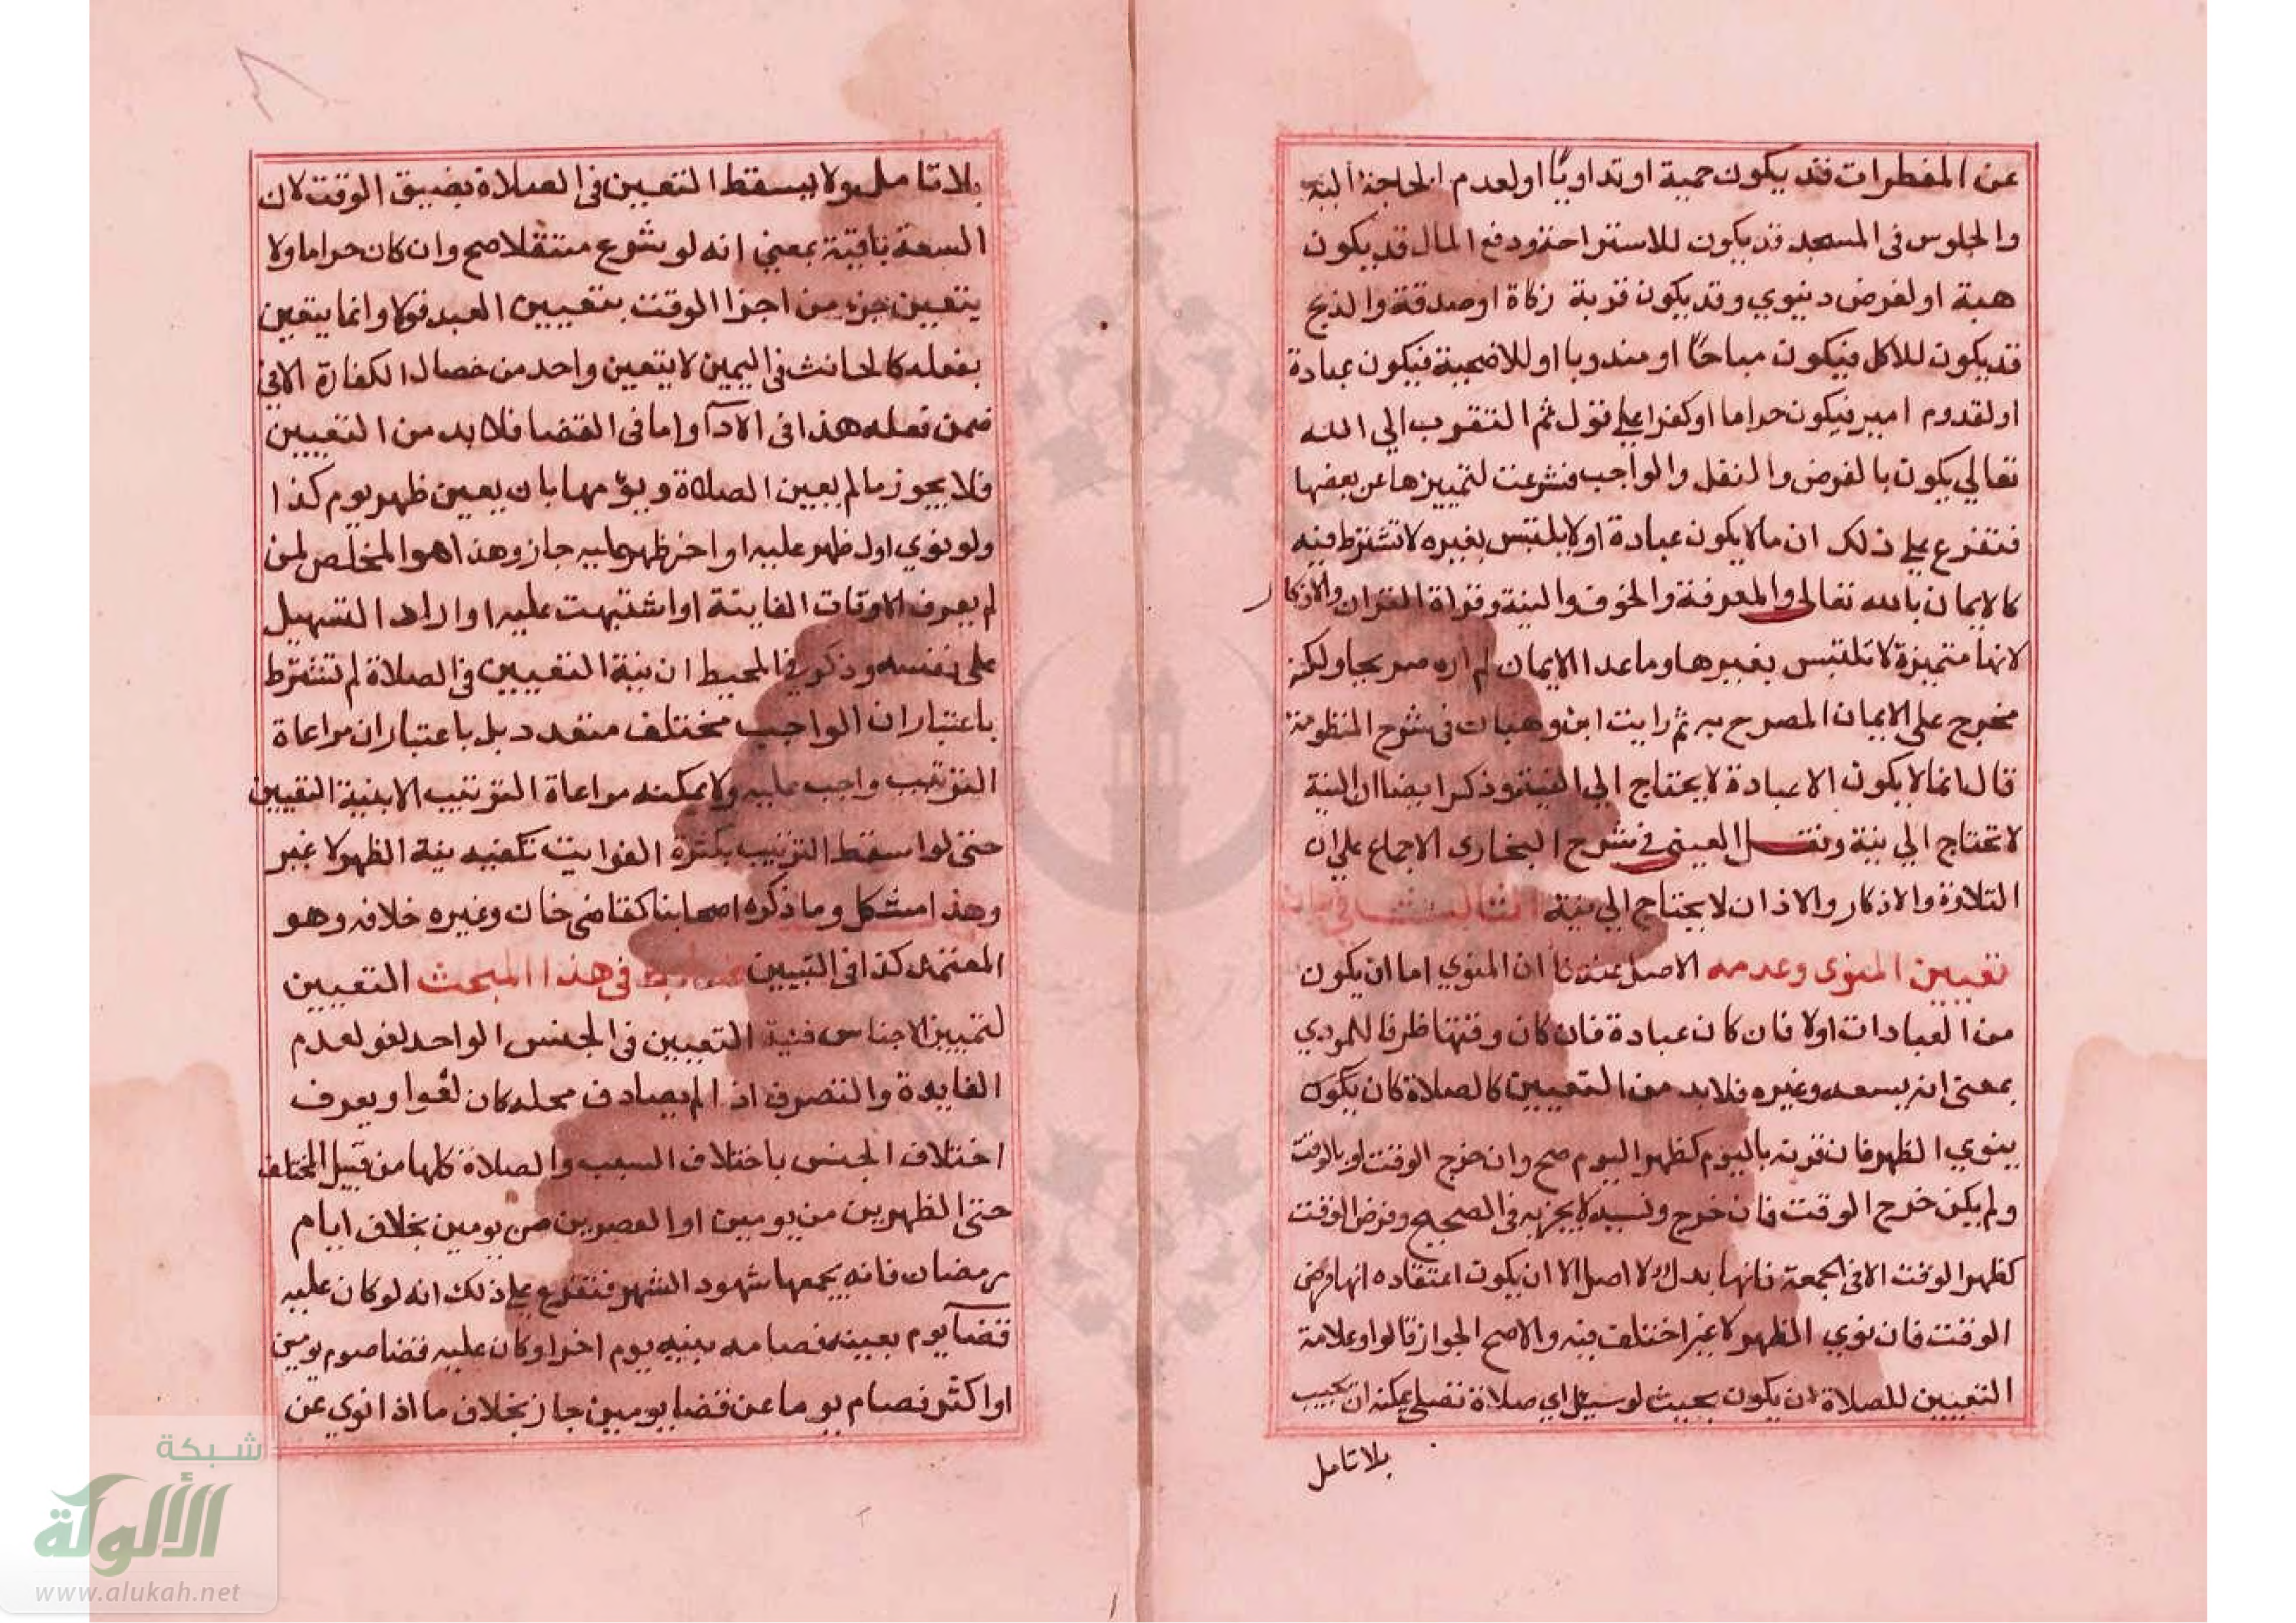 عن المفطرات قد يكون حمية او تداويًا او لعدم الحاجة اليه
والجلوس في المسجد قد يكون للاستراحة ودفع المال قد يكون
هبة او لغرض دنيوي وقد يكون قربة زكاة او صدقة والذبح
قد يكون للاكل فيكون مباحًا او مندوبا او للاضحية فيكون عبادة
او لقدوم امير فيكون حراما او كفرا علي قول ثم التقرب الي الله
تعالي يكون بالفرض والنفل والواجب فشرعت لتمييزها عن بعضها
فتفرع علي ذلك ان ما لا يكون عبادة او لا يلتبس بغيره لا تشترط فيه
كالايمان بالله تعالى والمعرفة والخوف والنية وقراة القران والاذكار
لانها متميزة لا تلتبس بغيرها وما عدا الايمان لم اره صريحا ولكنه
مخرج على الايمان المصرح به ثم رايت ابن وهبان في شرح المنظومة
قال ان ما لا يكون الا عبادة لا يحتاج الي النية وذكر ايضا ان النية
لا تحتاج الي نية ونقل العيني في شرح البخاري الاجماع علي ان
التلاوة والاذكار والاذان لا يحتاج الي نية الثالث في بيان
تعيين المنوى وعدمه الاصل عندنا ان المنوي اما ان يكون
من العبادات اولا فان كان عبادة فان كان وقتها ظرفا للمودي
بمعنى انه يسعه وغيره فلا بد من التعيين كالصلاة كان يكون
ينوي الظهر فان قرنه باليوم كظهر اليوم صح وان خرج الوقت او بالوقت
ولم يكن خرج الوقت فان خرج ونسيه لا يجزيه في الصحيح وفرض الوقت
كظهر الوقت الا في الجمعة فانها بدل لا اصل الا ان يكون اعتقاده انها فرض
الوقت فان نوي الظهر لا غير اختلف فيه والاصح الجواز قالوا وعلامة
التعيين للصلاة ان يكون بحيث لو سيل اي صلاة تصلي يمكنه ان يجيب
بلا تامل
بلا تامل ولا يسقط التعيين في الصلاة بضيق الوقت لان
السعة باقية بمعني انه لو شرع متنفلا صح وان كان حراما ولا
يتعين جزء من اجزا الوقت بتعيين العبد قولا وانما يتعين
بفعله كالحانث في اليمين لا يتعين واحد من خصال الكفارة الا في
ضمن فعله هذا في الادآ واما في القضا فلا بد من التعيين
فلا يجوز ما لم يعين الصلاة ويومها بان يعين ظهر يوم كذا
ولو نوي اول ظهر عليه او اخر ظهر عليه جاز وهذا هو المخلص لمن
لم يعرف الاوقات الفايتة او اشتبهت عليه او اراد التسهيل
على نفسه وذكر في المحيط ان نية التعيين في الصلاة لم تشترط
باعتبار ان الواجب مختلف متعدد بل باعتبار ان مراعاة
الترتيب واجب عليه ولا يمكنه مراعاة الترتيب الا بنية التعيين
حتى لو سقط الترتيب بكثرة الفوايت تكفيه نية الظهر لا غير
وهذا مشكل وما ذكره اصحابنا كقاضي خان وغيره خلافه وهو
المعتمد كذا في التبيين ضابط في هذا المبحث التعيين
لتمييز الاجناس فنية التعيين في الجنس الواحد لغو لعدم
الفايدة والتصرف اذا لم يصادف محله كان لغوا ويعرف
اختلاف الجنس باختلاف السبب والصلاة كلها من قبيل المختلف
حتى الظهرين من يومين او العصرين من يومين بخلاف ايام
رمضان فانه يجمعها شهود الشهر فتفرع علي ذلك انه لو كان عليه
قضآ يوم بعينه فصامه بنية يوم اخر او كان عليه قضا صوم يومين
او اكثر فصام يوما عن قضا يومين جاز بخلاف ما اذا نوي عن
شبكة
الألوكة
www.alukah.net